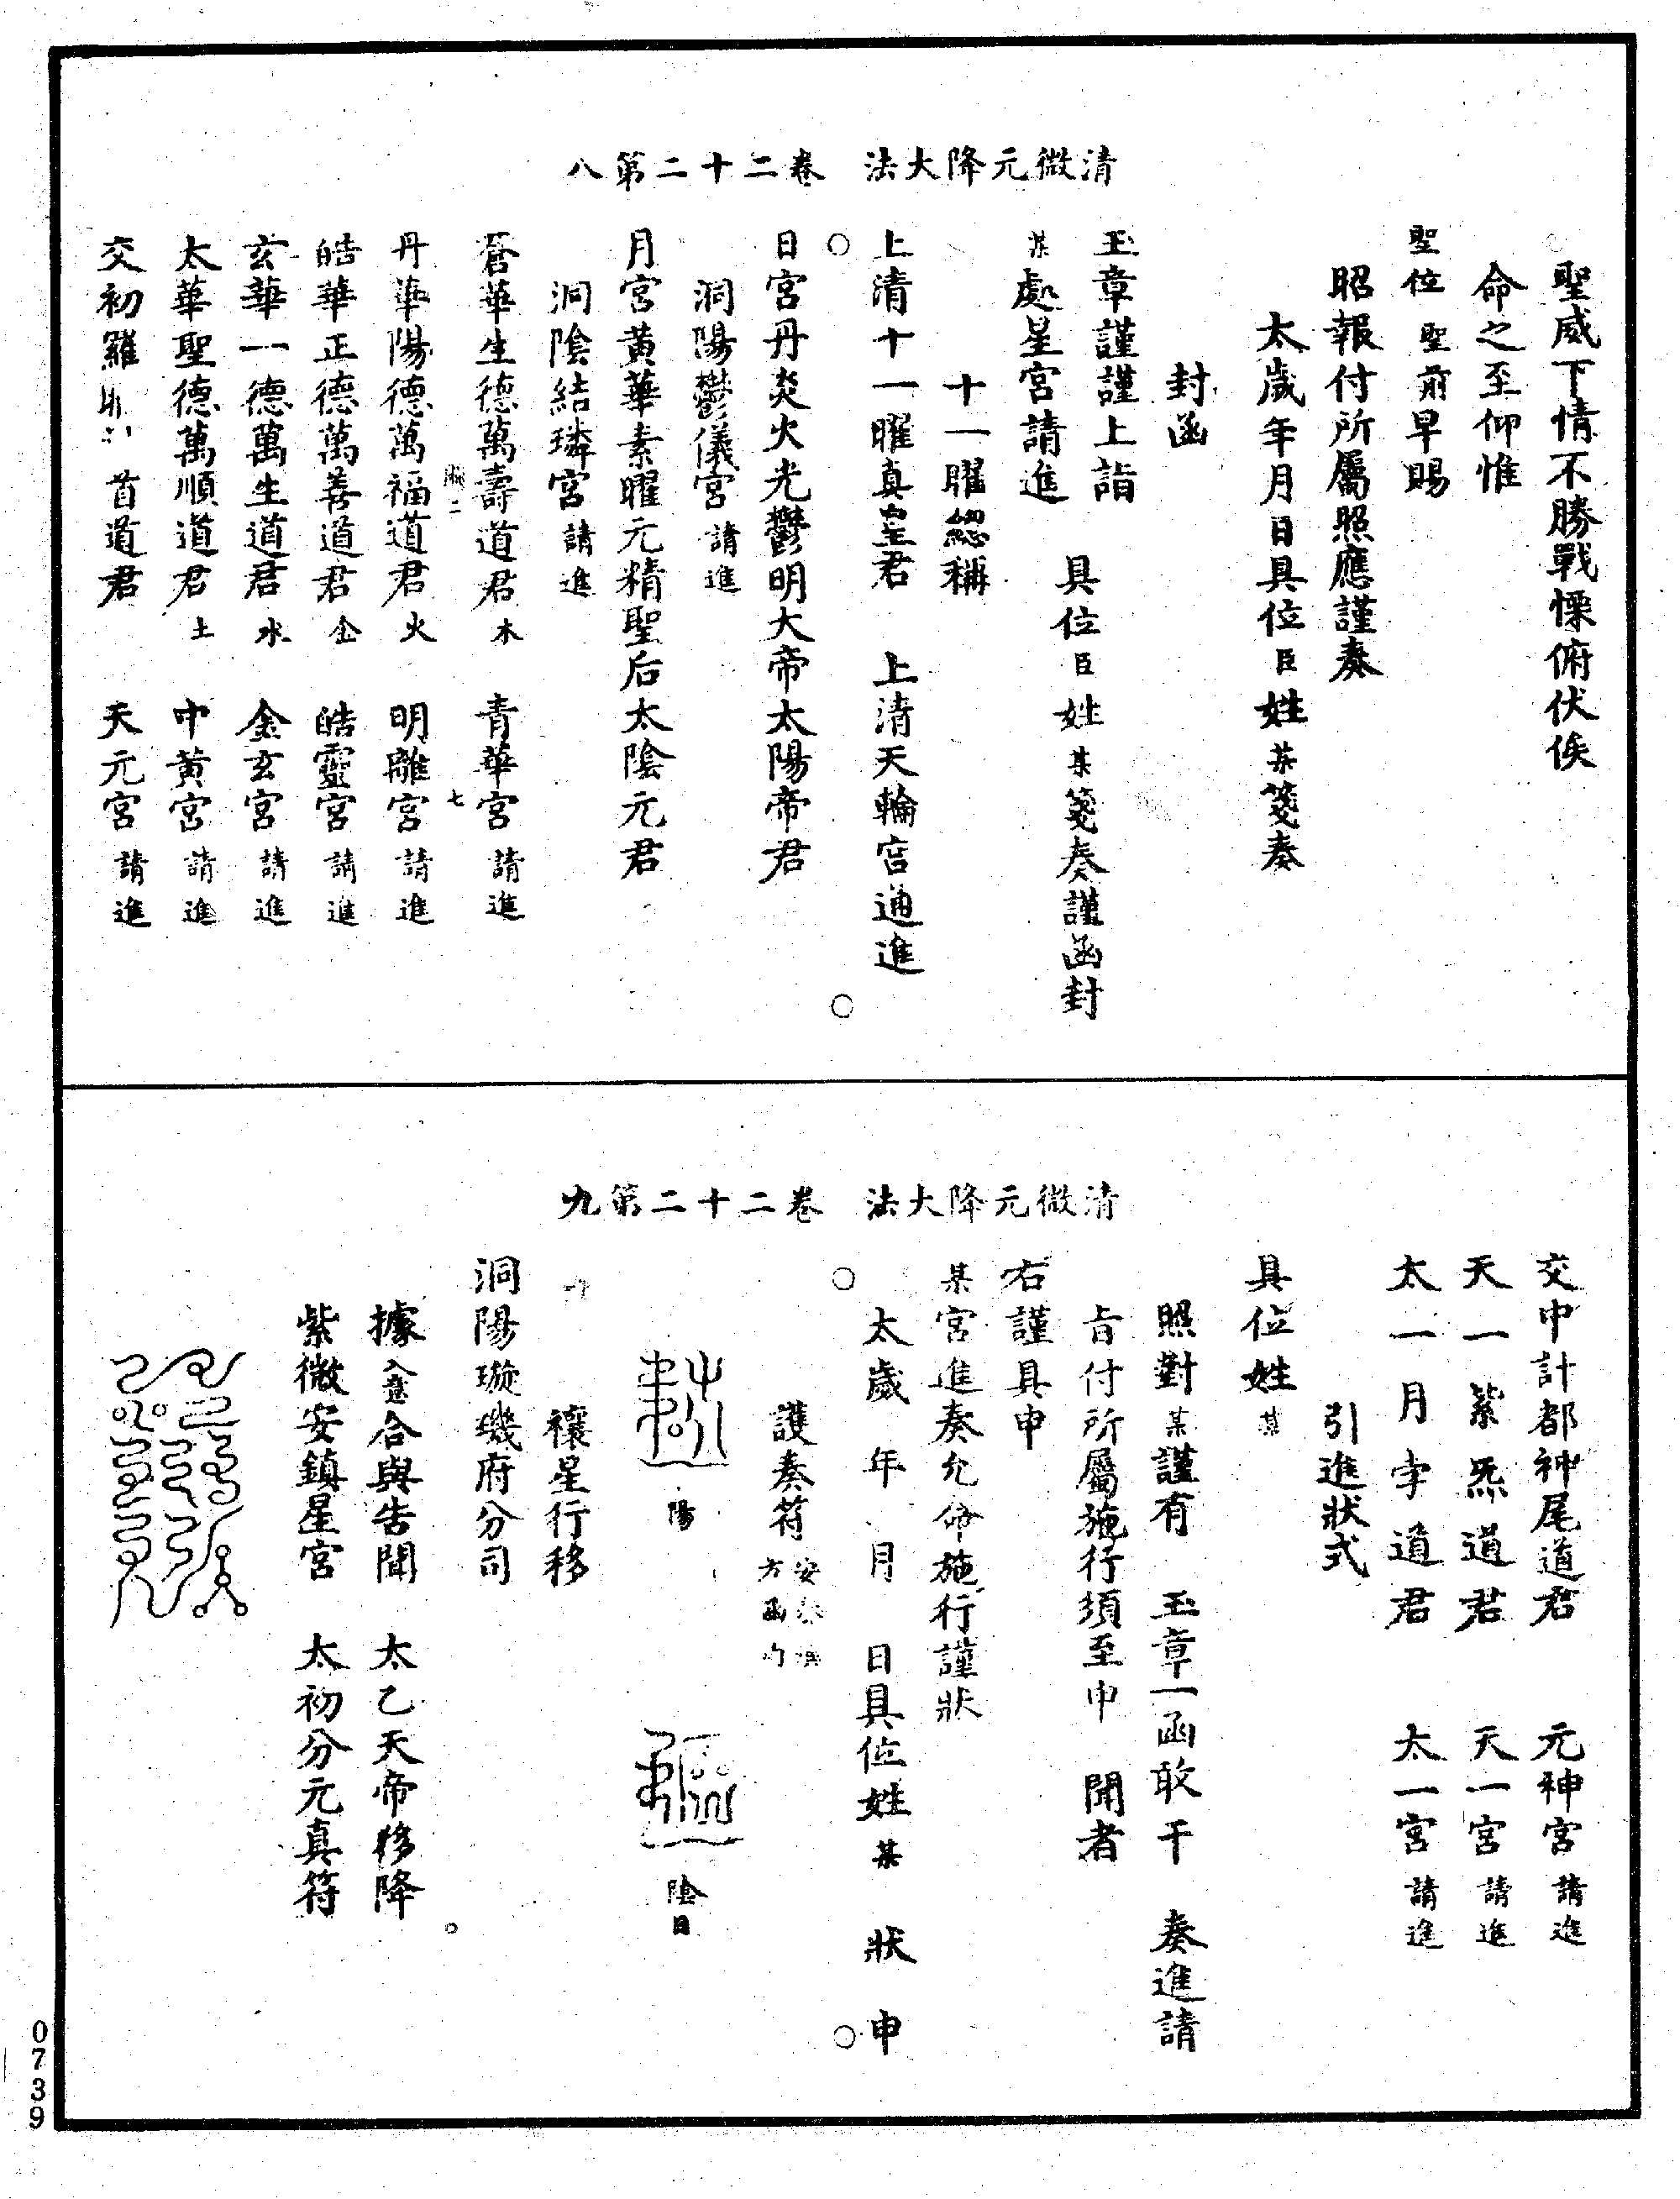 清微元降大法　卷二十二第八
聖威下情不勝戰慄俯伏俟
命之至仰惟
聖位聖前早賜
昭報付所屬照應謹奏
太歲年月日具位臣姓某箋奏
封函
玉章謹謹上詣　具位臣姓某箋奏謹函封
某處星宮請進
十一曜總稱
上清十一曜真皇君　上清天輪宮通進
日宮丹炎火光鬱明大帝太陽帝君
洞陽鬱儀宮請進
月宮黃華素曜元精聖后太陰元君
洞陰結璘宮請進
蒼華生德萬壽道君木　青華宮請進
七
丹華陽德萬福道君火　明離宮請進
皓華正德萬善道君金　皓靈宮請進
玄華一德萬生道君水　金玄宮請進
太華聖德萬順道君土　中黃宮請進
交初羅首道君　天元宮請進
清微元降大法　卷二十二第九
交中計都神尾道君　元神宮請進
天一紫炁道君　天一宮請進
太一月孛道君　太一宮請進
引進狀式
具位姓某
照對某謹有　玉章一函敢干　奏進請
旨付所屬施行須至申　聞者
右謹具申
某宮進奏允命施行謹狀
太歲　年　月　日具位姓某　狀　申
護奏符安方函內
陽
陰日
禳星行移
洞陽璇璣府分司
據入意合與告聞　太乙天帝移降
紫微安鎮星宮　太初分元真符
0739